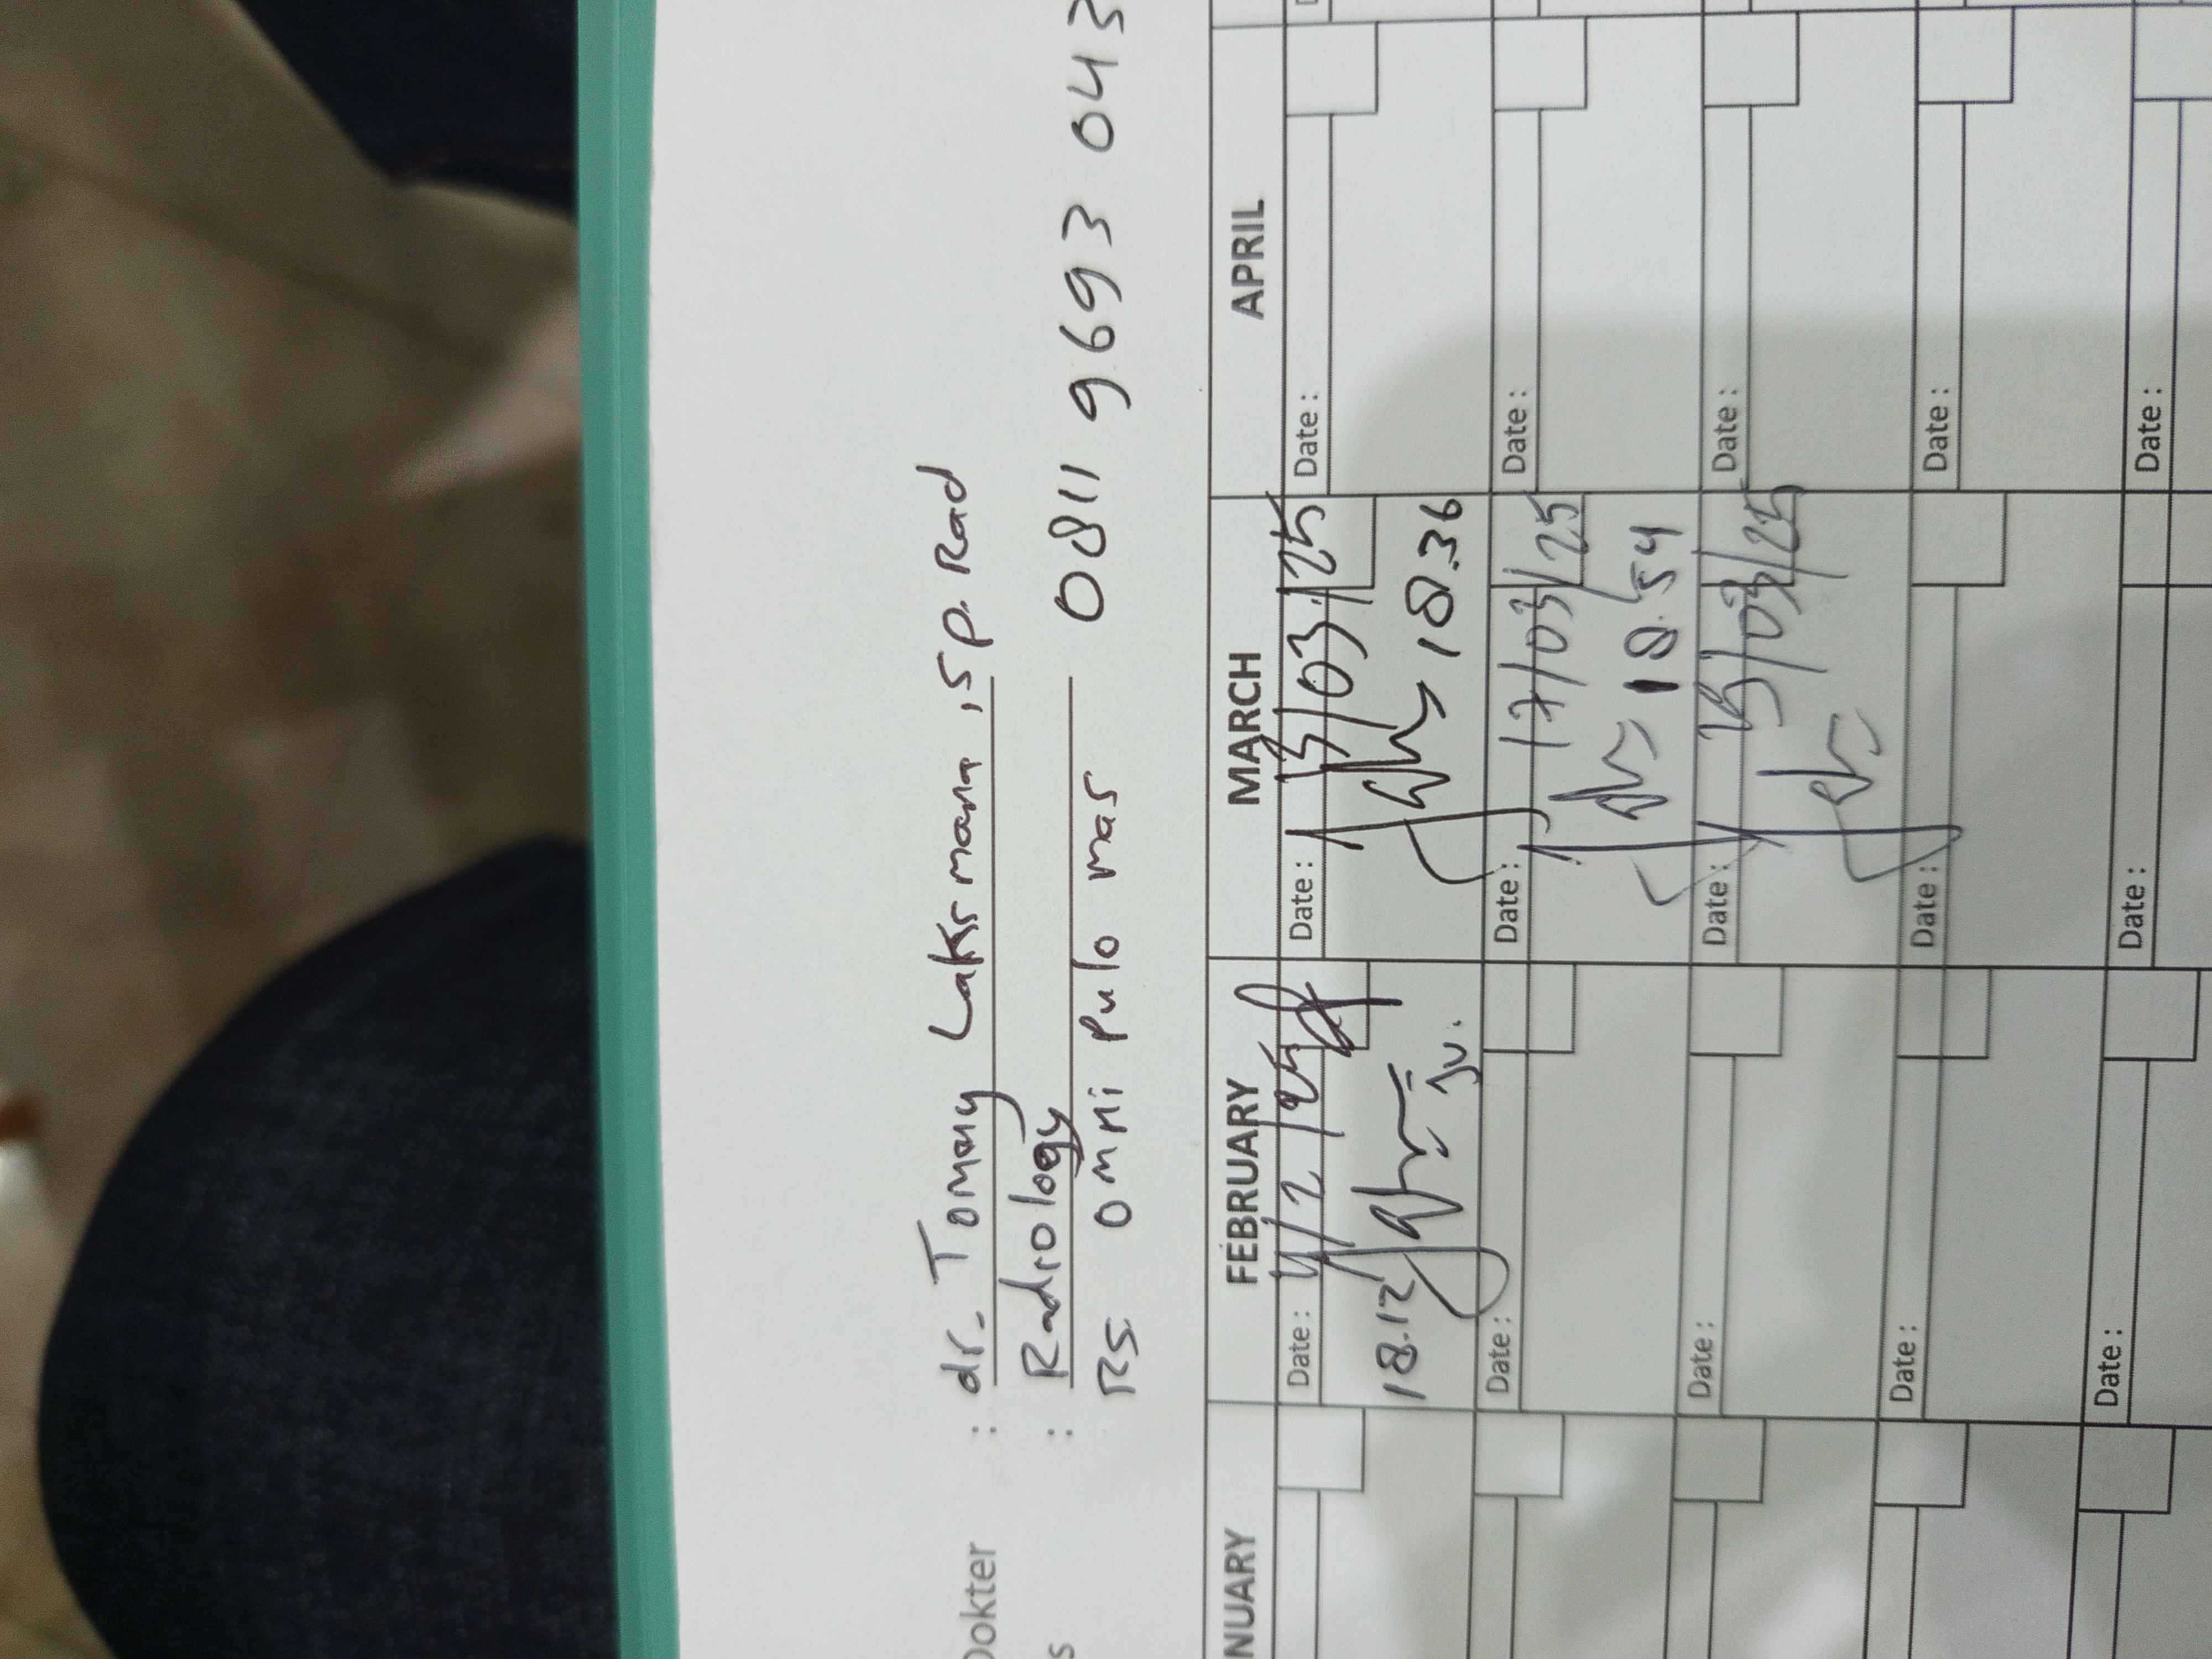 Dokter : dr. Tommy Laksmana, Sp. Rad
s : Radiology
RS OMNI Pulo mas 0811 9693 043
NUARY FEBRUARY MARCH APRIL
Date : 4/2/25 Date : 13/03/25 Date :
18.12 18.36
Date : Date : 17/03/25 Date :
18.54
Date : Date : /03/25 Date :
Date : Date : Date :
Date : Date : Date :